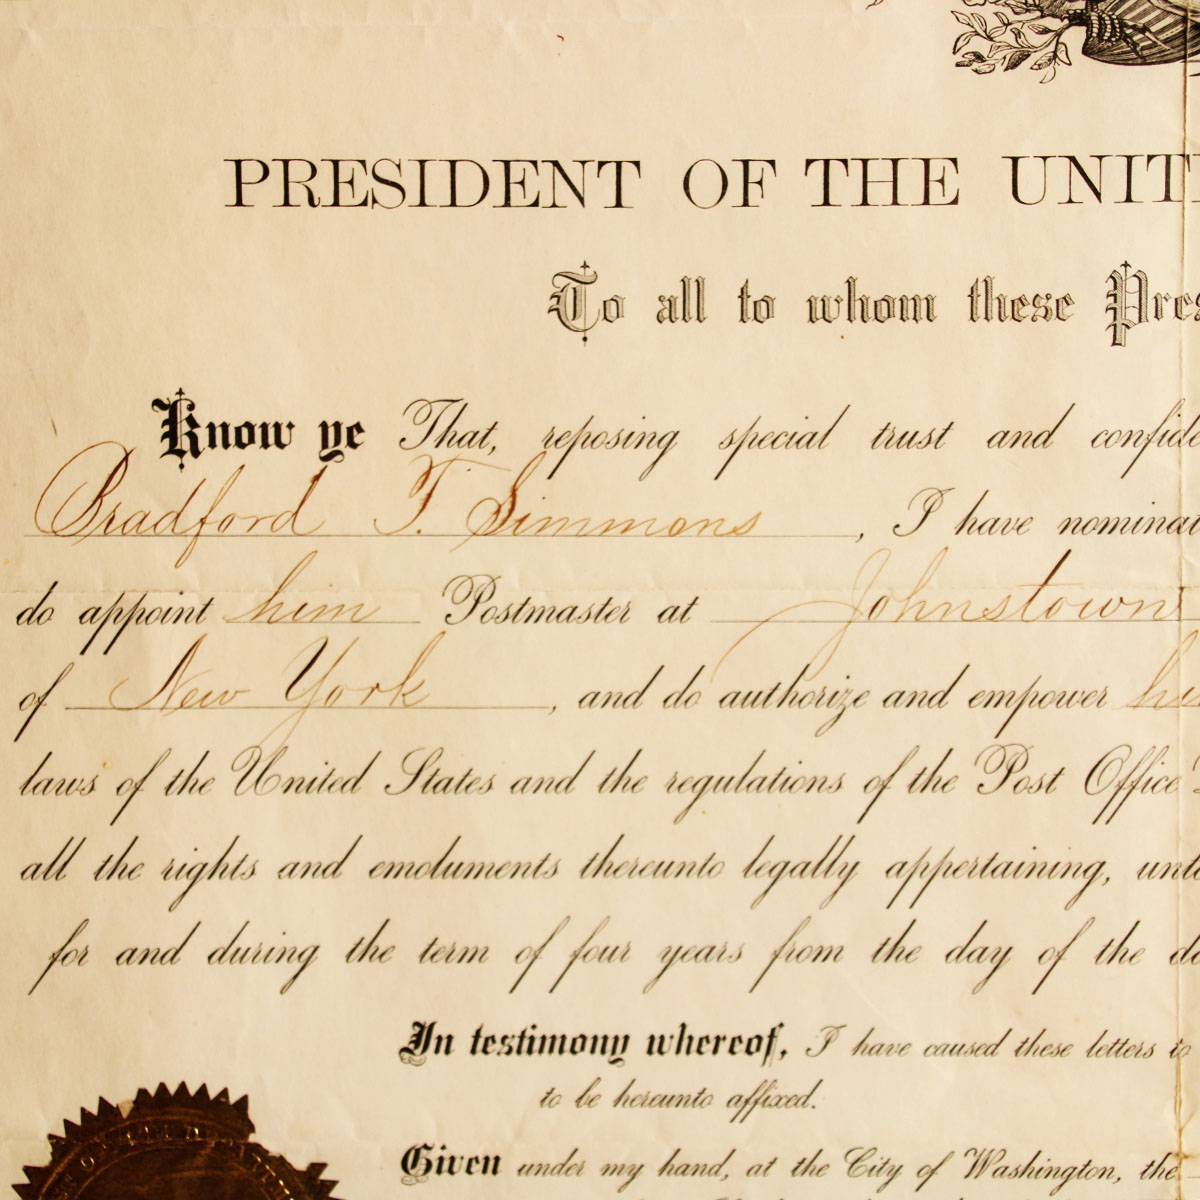 PRESIDENT OF THE UNIT
To all to whom these Pres
Know ye That, reposing special trust and confide
Bradford T. Simmons, I have nominat
do appoint him Postmaster at Johnstown
of New York, and do authorize and empower hi
laws of the United States and the regulations of the Post Office
all the rights and emoluments thereunto legally appertaining, unto
for and during the term of four years from the day of the da
In testimony whereof, I have caused these letters to
to be hereunto affixed.
Given under my hand, at the City of Washington, the